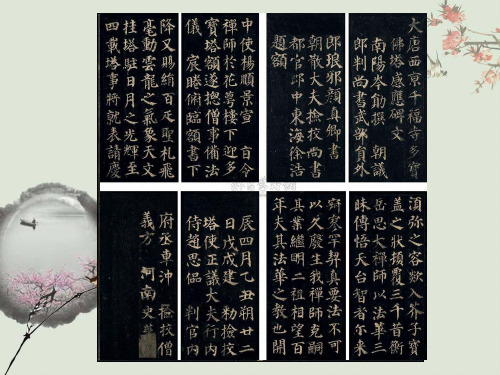 大唐西京千福寺多寶
佛塔感應碑文
南陽岑勛撰 朝議
郎判尚書武部員外
郎琅邪顏真卿書
朝散大夫撿挍尚書
都官郎中東海徐浩
題額
中使楊順景宣 旨令
禪師於花萼樓下迎多
寶塔額遂揔僧事備法
儀 宸睠俯臨額書下
降又賜絹百疋聖札飛
毫動雲龍之氣象天文
挂塔駐日月之光輝至
四載塔事將就表請慶
湏弥之容欻入芥子寶
盖之狀頓覆三千昔衡
岳思大禪師以法華三
昧傳悟天台智者尒来
寂寥罕契真要法不可
以久廢生我禪師克嗣
其業継明二祖相望百
年夫其法華之教也開
辰四月乙丑朔廿二
日戊戌建 勑撿挍
塔使正議大夫行内
侍趙思偘 判官内
府丞車沖 撿挍僧
義方 河南史華